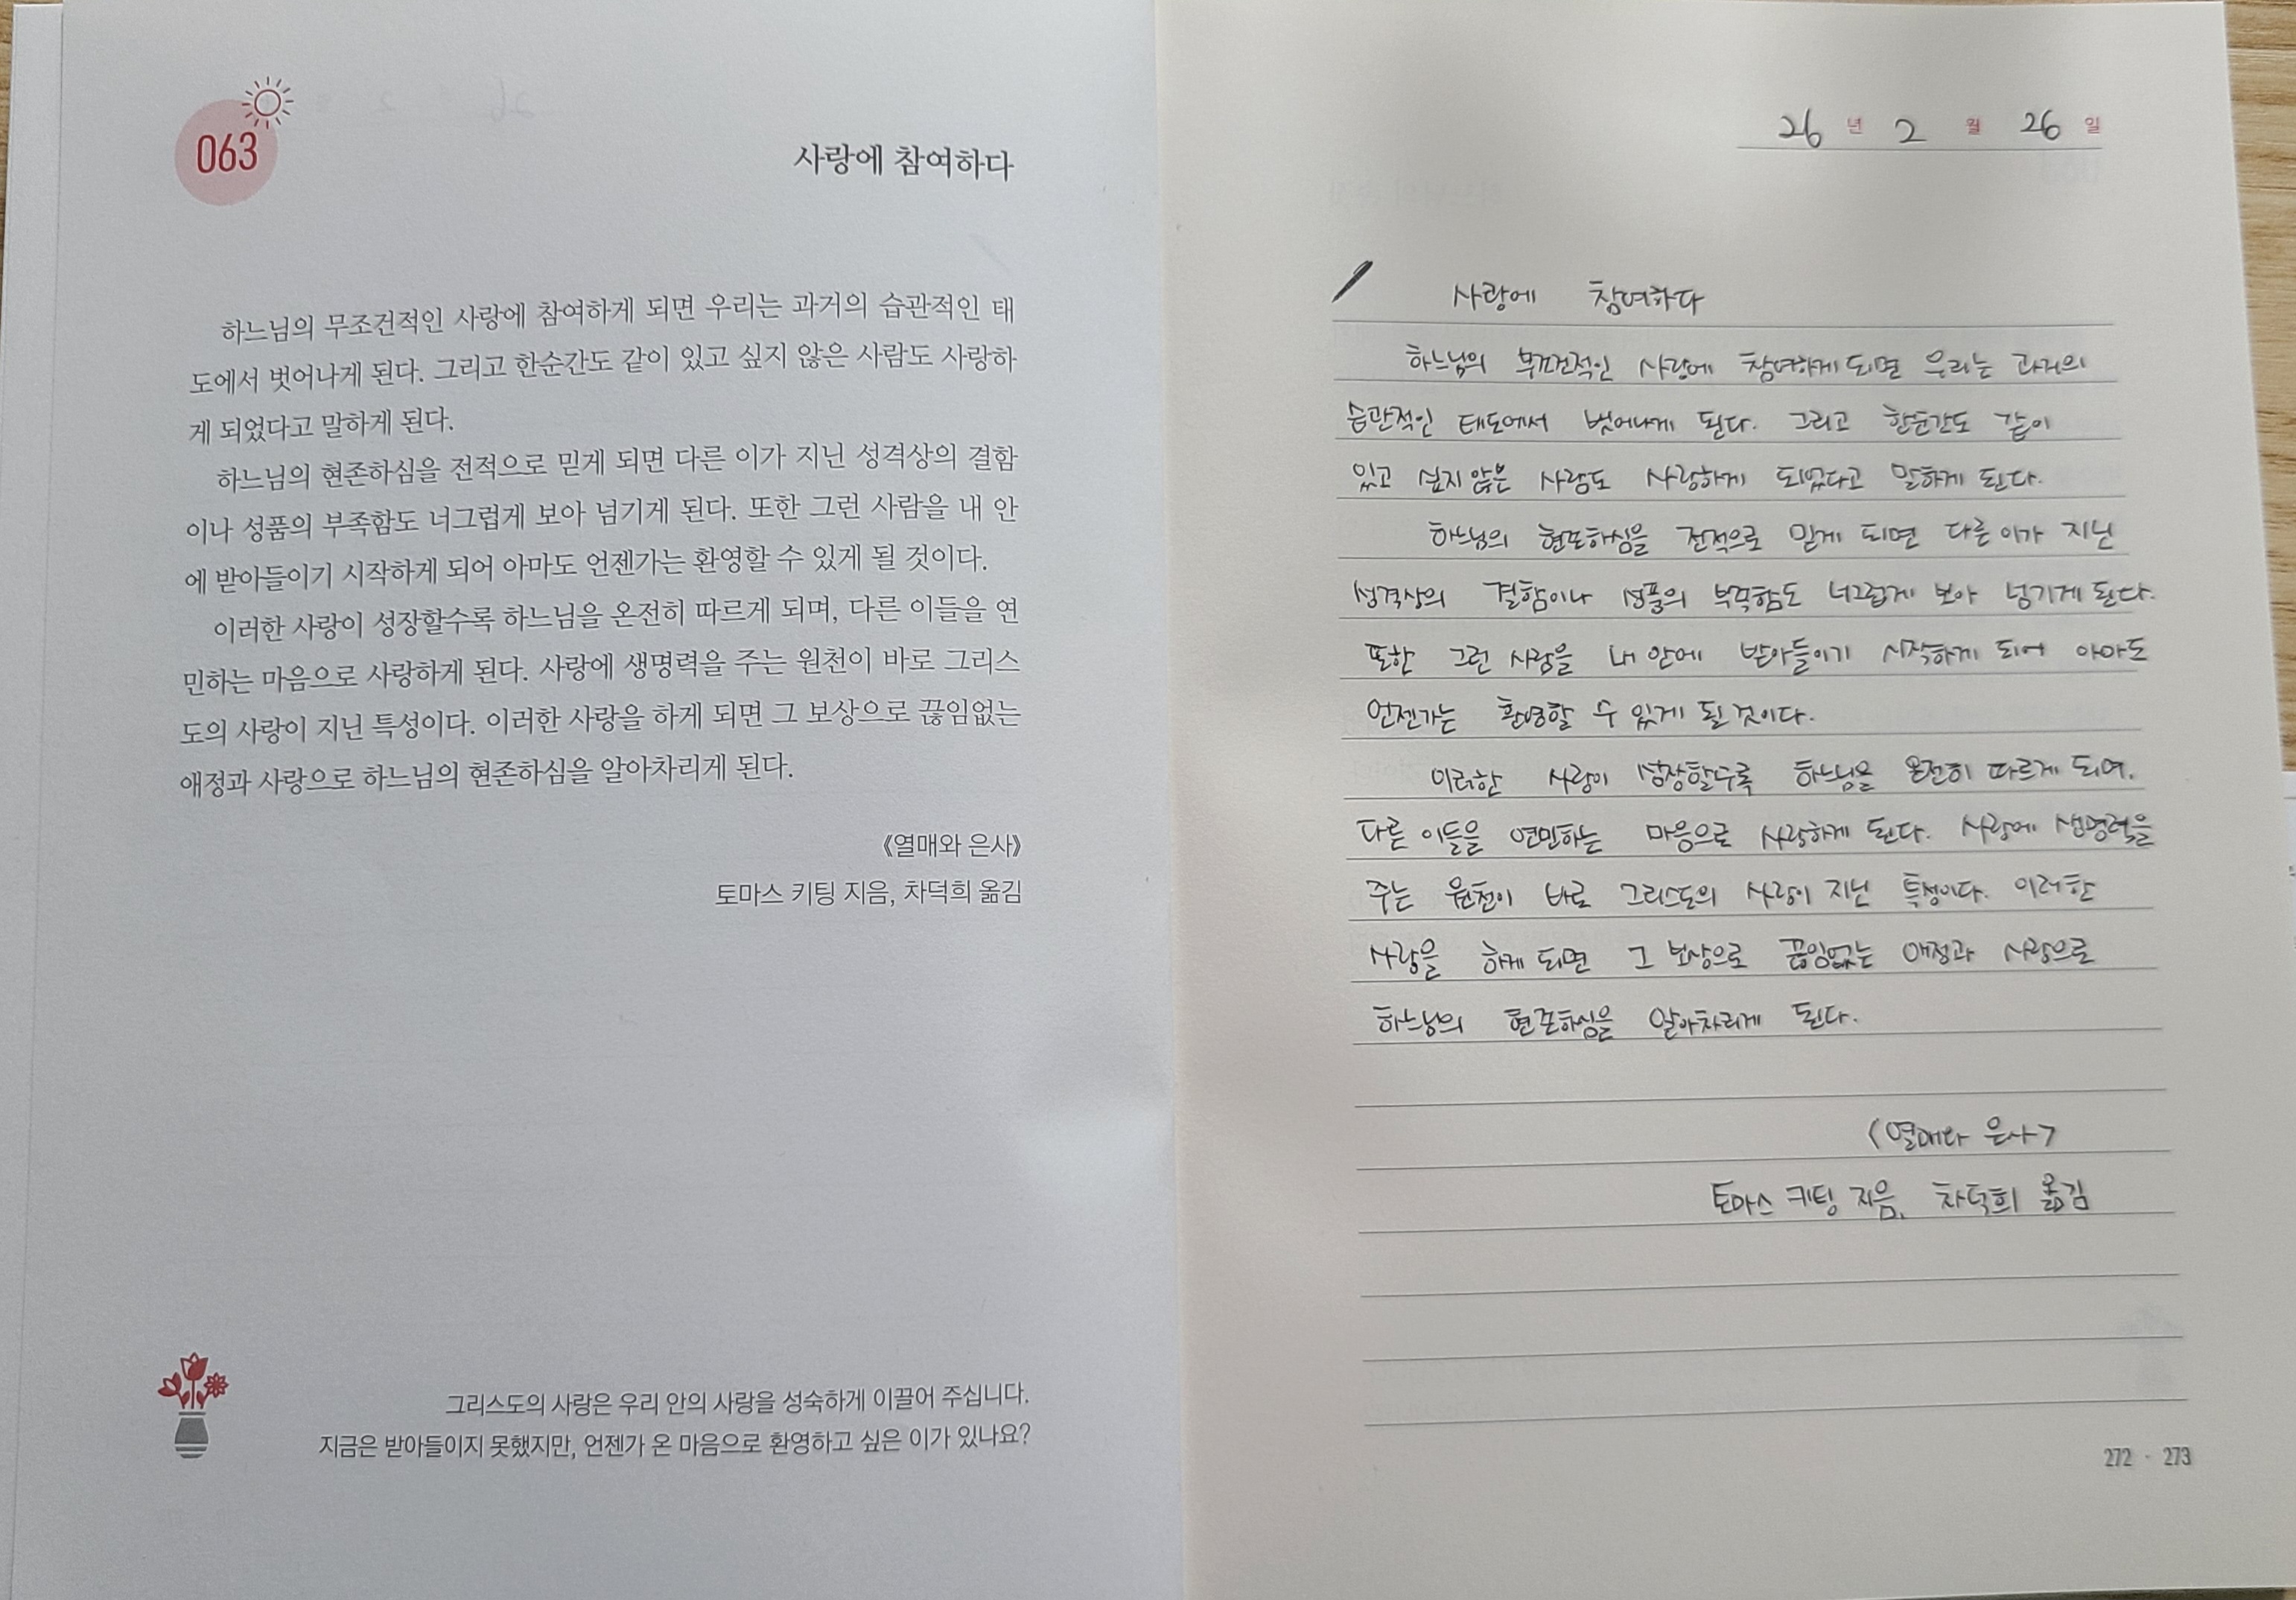 063
사랑에 참여하다
하느님의 무조건적인 사랑에 참여하게 되면 우리는 과거의 습관적인 태
도에서 벗어나게 된다. 그리고 한순간도 같이 있고 싶지 않은 사람도 사랑하
게 되었다고 말하게 된다.
하느님의 현존하심을 전적으로 믿게 되면 다른 이가 지닌 성격상의 결함
이나 성품의 부족함도 너그럽게 보아 넘기게 된다. 또한 그런 사람을 내 안
에 받아들이기 시작하게 되어 아마도 언젠가는 환영할 수 있게 될 것이다.
이러한 사랑이 성장할수록 하느님을 온전히 따르게 되며, 다른 이들을 연
민하는 마음으로 사랑하게 된다. 사랑에 생명력을 주는 원천이 바로 그리스
도의 사랑이 지닌 특성이다. 이러한 사랑을 하게 되면 그 보상으로 끊임없는
애정과 사랑으로 하느님의 현존하심을 알아차리게 된다.
《열매와 은사》
토마스 키팅 지음, 차덕희 옮김
그리스도의 사랑은 우리 안의 사랑을 성숙하게 이끌어 주십니다.
지금은 받아들이지 못했지만, 언젠가 온 마음으로 환영하고 싶은 이가 있나요?
26 년 2 월 26 일
사랑에 참여하다
하느님의 무조건적인 사랑에 참여하게 되면 우리는 과거의
습관적인 태도에서 벗어나게 된다. 그리고 한순간도 같이
있고 싶지 않은 사람도 사랑하게 되었다고 말하게 된다.
하느님의 현존하심을 전적으로 믿게 되면 다른 이가 지닌
성격상의 결함이나 성품의 부족함도 너그럽게 보아 넘기게 된다.
또한 그런 사람을 내 안에 받아들이기 시작하게 되어 아마도
언젠가는 환영할 수 있게 될 것이다.
이러한 사랑이 성장할수록 하느님을 온전히 따르게 되며,
다른 이들을 연민하는 마음으로 사랑하게 된다. 사랑에 생명력을
주는 원천이 바로 그리스도의 사랑이 지닌 특성이다. 이러한
사랑을 하게 되면 그 보상으로 끊임없는 애정과 사랑으로
하느님의 현존하심을 알아차리게 된다.
<열매와 은사>
토마스 키팅 지음, 차덕희 옮김
272 · 273